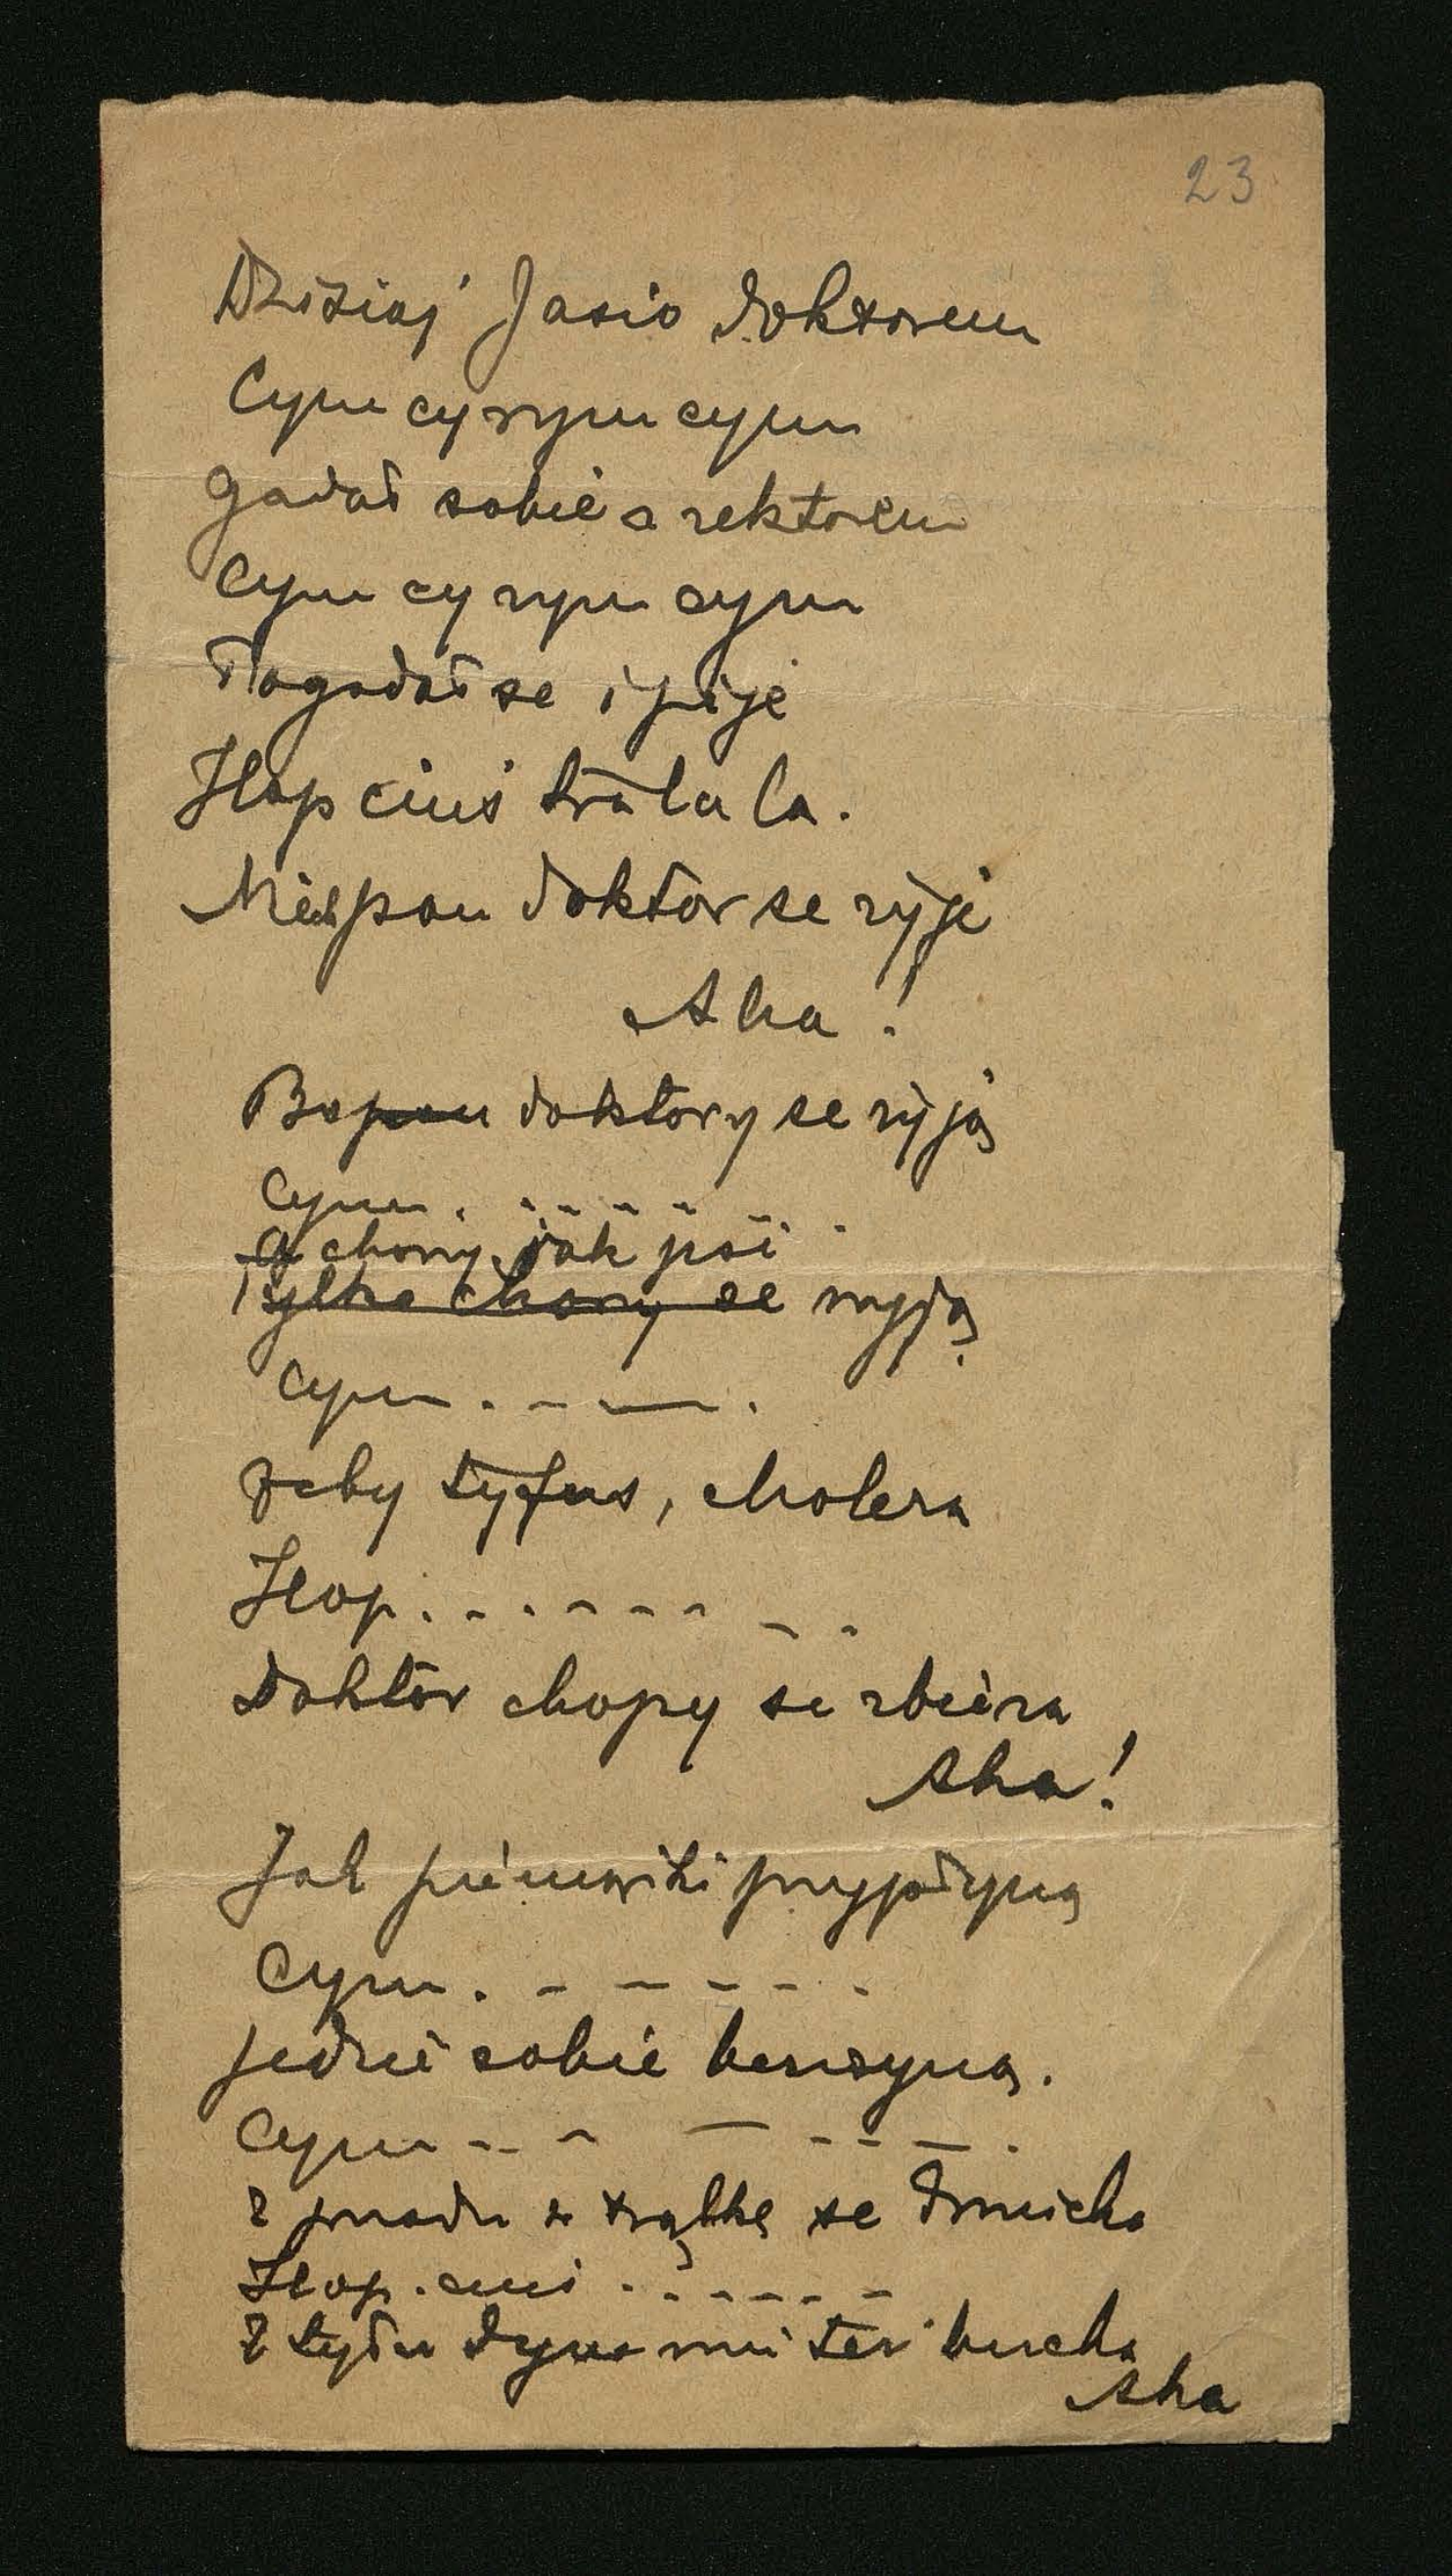 23
Dzisiaj Jasio doktorem
Cym cyrym cym
gadał sobie z rektorem
Cym cyrym cym
Pogadał se i pije
Hop ciuś tra la la.
Niech pan doktor se żyje
Aha!
Bo pan doktory se żyją
Cym. - - - - - .
a chory jak psi
Tylko chory se wyją
Cym. - - .
żeby tyfus, cholera
Hop. - - - - - - -
Doktor chopy se zbiera
Aha!
Jak piniążki przypłyną
Cym. - - - - - .
jedzie sobie benzyną.
Cym - - - - - - - .
Z przodu w trąbkę se dmucha
Hop. ciuś . - - - - -
Z tyłu dym mu też bucha
Aha